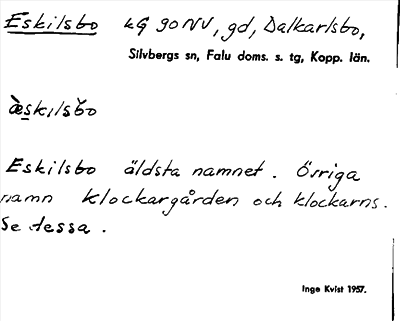 Eskilsbo kG 90 NV, gd, Dalkarlsbo,
Silvbergs sn, Falu doms. s. tg, Kopp. län.
æ̀skilsbo
Eskilsbo äldsta namnet. Övriga
namn klockargården och klockarns.
Se dessa.
Inge Kvist 1957.